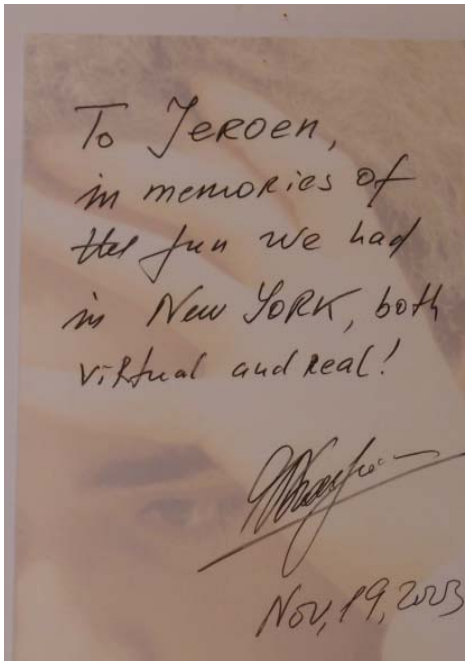 To Jeroen,
in memories of
the fun we had
in New York, both
virtual and real!
Nov, 19, 2003